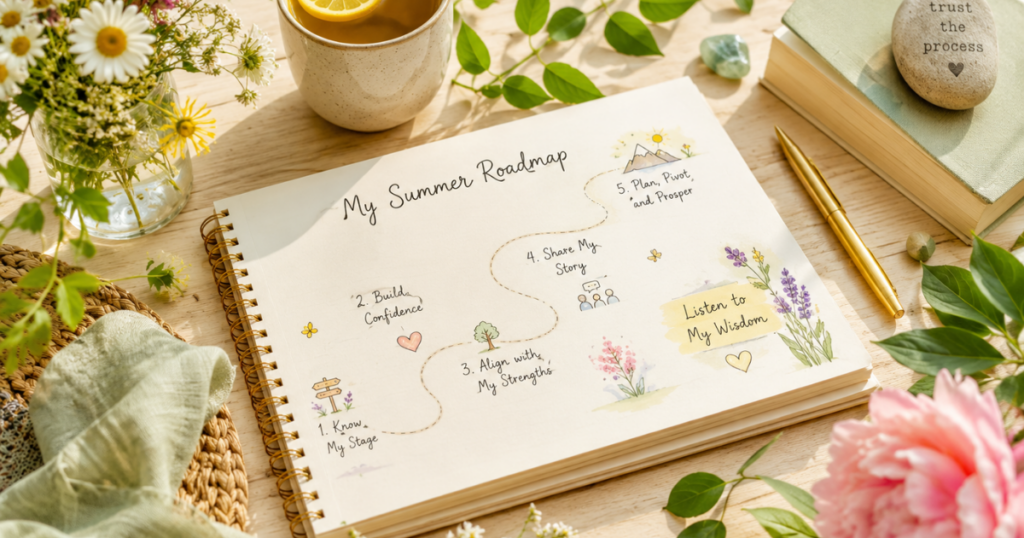 trust
the
process
My Summer Roadmap
5. Plan, Pivot,
and Prosper
4. Share My
Story
2. Build
Confidence
Listen to
My Wisdom
3. Align with
My Strengths
1. Know
My Stage